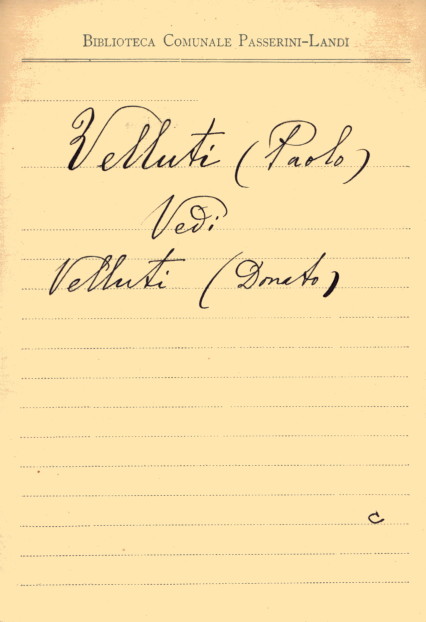 BIBLIOTECA COMUNALE PASSERINI-LANDI
Velluti (Paolo)
Vedi
Velluti (Donato)
c